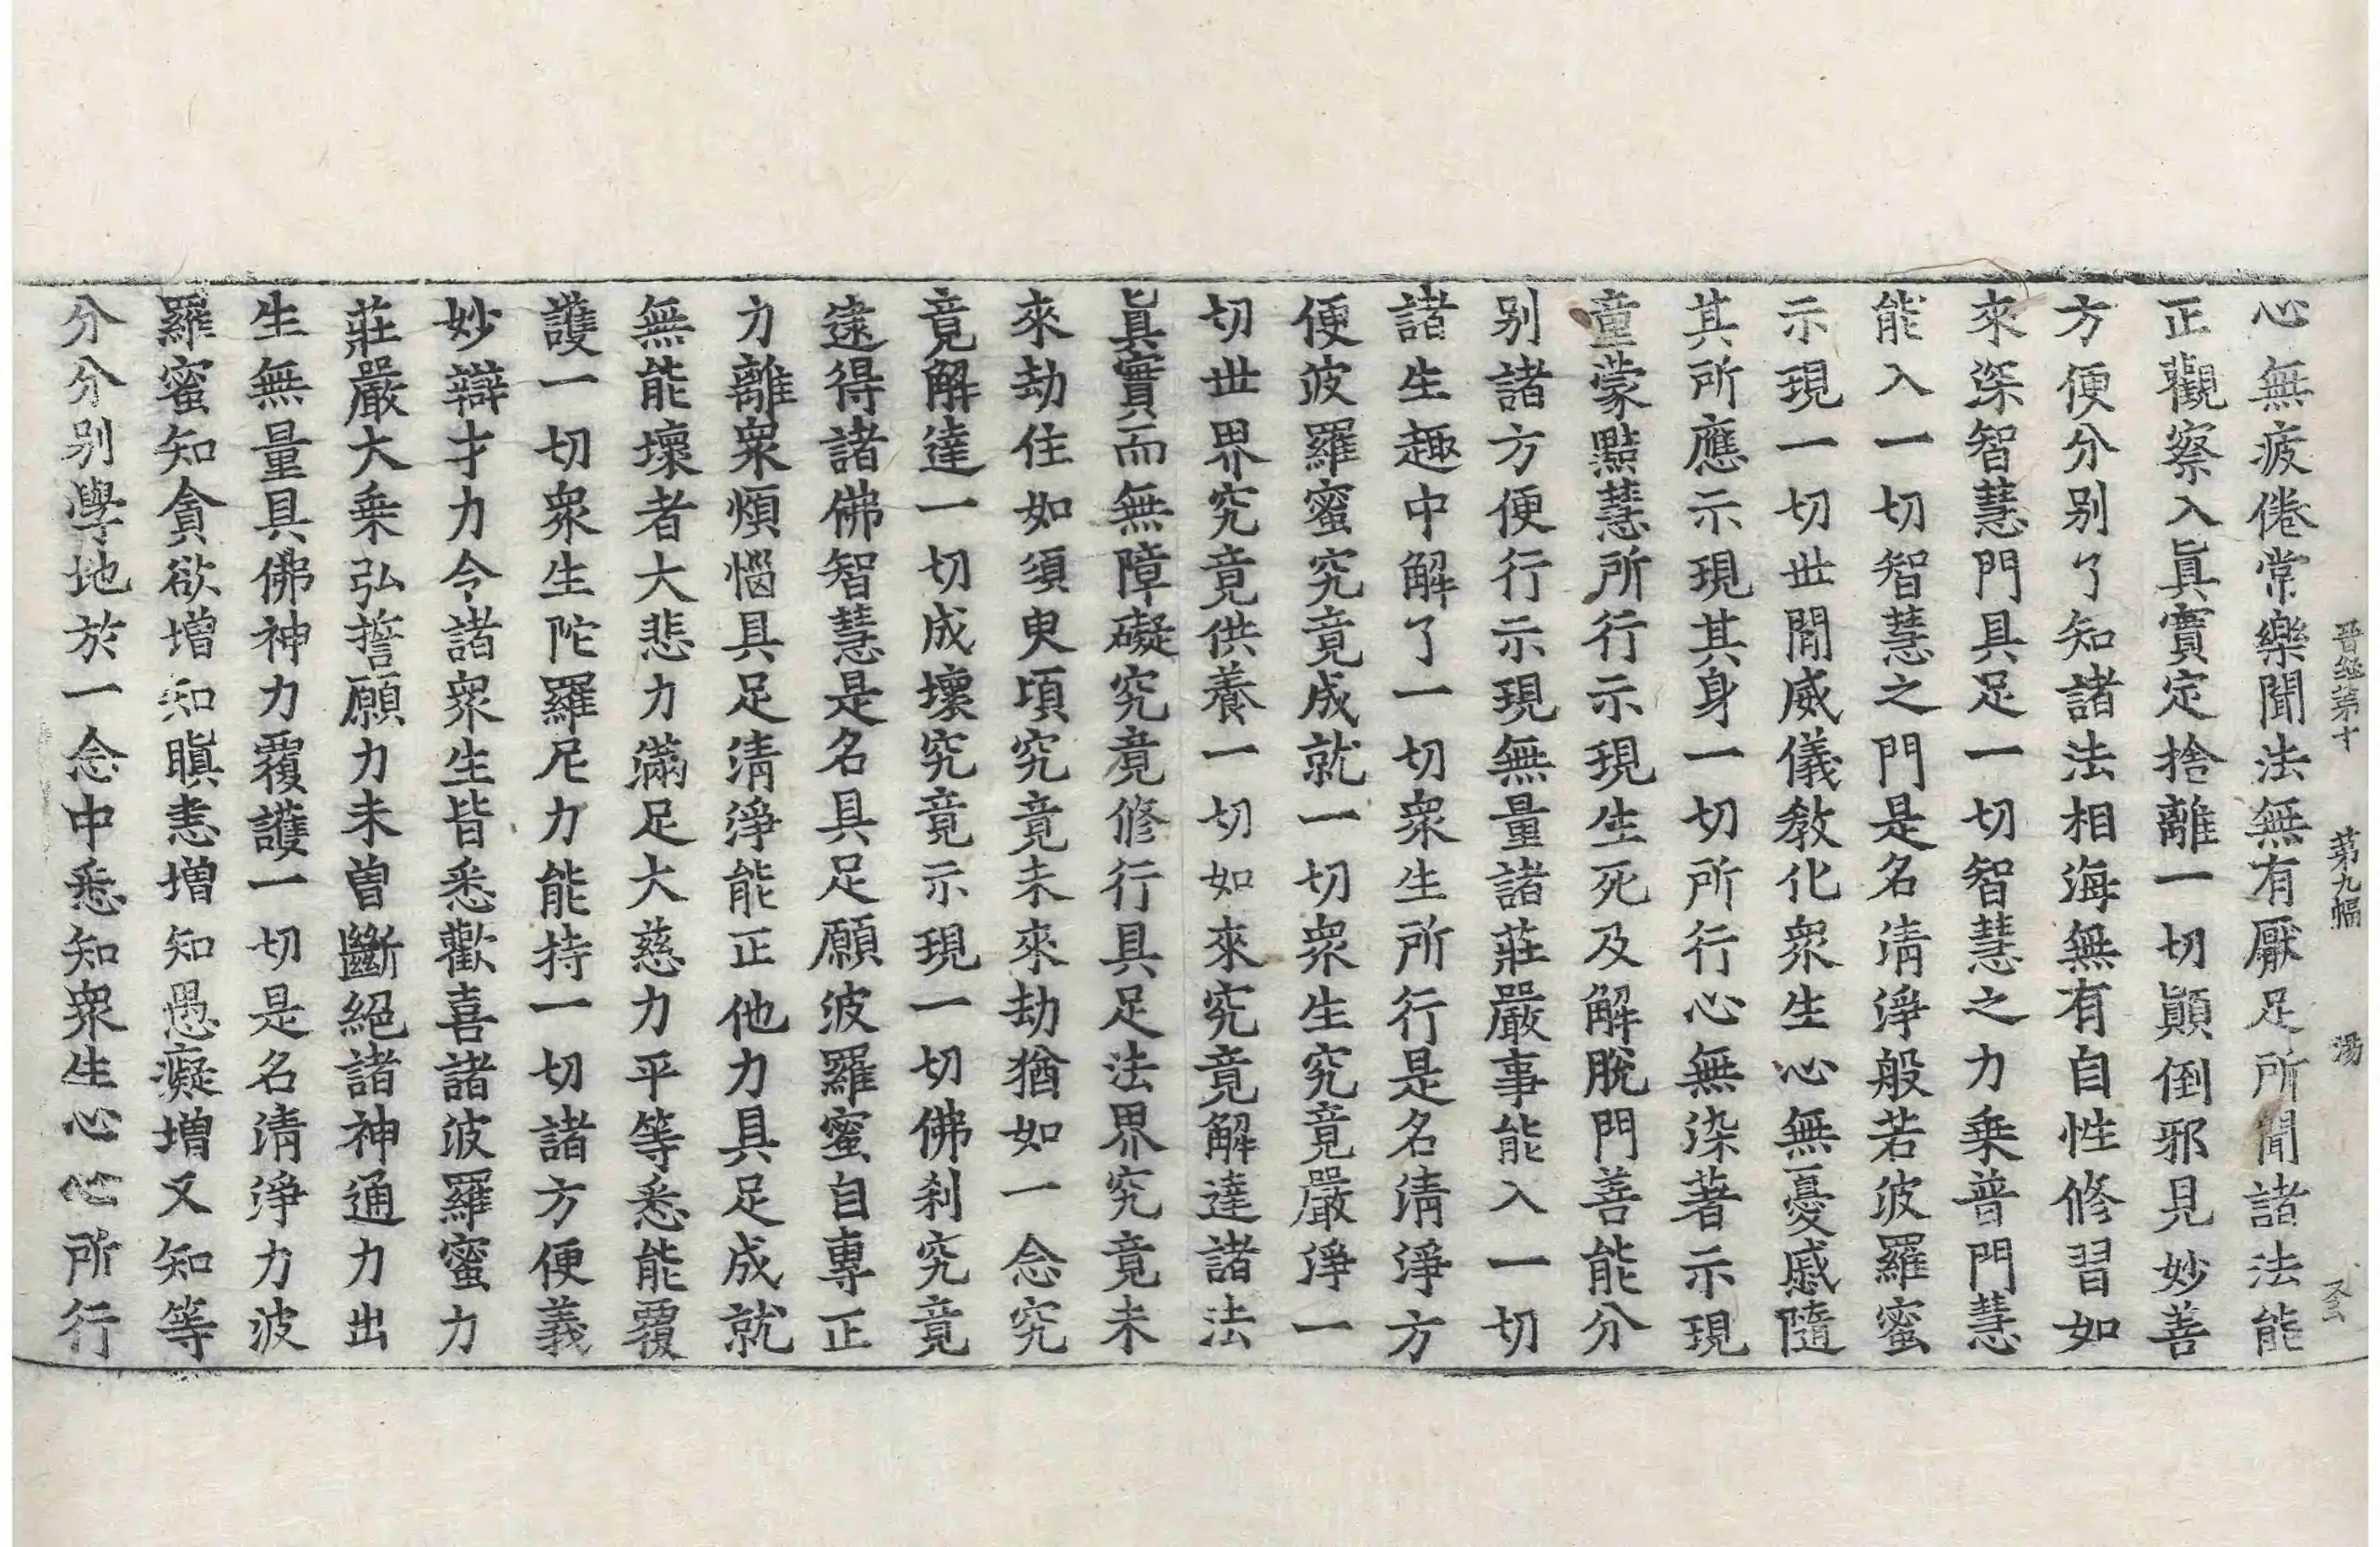 晉經第十 第九幅 湯
心無疲倦常樂聞法無有厭足所聞諸法能
正觀察入眞實定捨離一切顚倒邪見妙善
方便分别了知諸法相海無有自性修習如
來深智慧門具足一切智慧之力乗普門慧
能入一切智慧之門是名清淨般若波羅蜜
示現一切世間威儀教化衆生心無憂慼隨
其所應示現其身一切所行心無染著示現
童蒙點慧所行示現生死及解脫門善能分
别諸方便行示現無量諸莊嚴事能入一切
諸生趣中解了一切衆生所行是名清淨方
便波羅蜜究竟成就一切衆生究竟嚴淨一
切世界究竟供養一切如來究竟解達諸法
眞實而無障礙究竟修行具足法界究竟未
來劫住如須臾頃究竟未來劫猶如一念究
竟解達一切成壞究竟示現一切佛刹究竟
逮得諸佛智慧是名具足願波羅蜜自專正
力離衆煩惱具足清淨能正他力具足成就
無能壞者大悲力滿足大慈力平等悉能覆
護一切衆生陀羅尼力能持一切諸方便義
妙辯才力令諸衆生皆悉歡喜諸波羅蜜力
莊嚴大乗弘誓願力未曽斷絕諸神通力出
生無量具佛神力覆護一切是名清淨力波
羅蜜知貪欲增知瞋恚增知愚癡增又知等
分分别學地於一念中悉知衆生心心所行